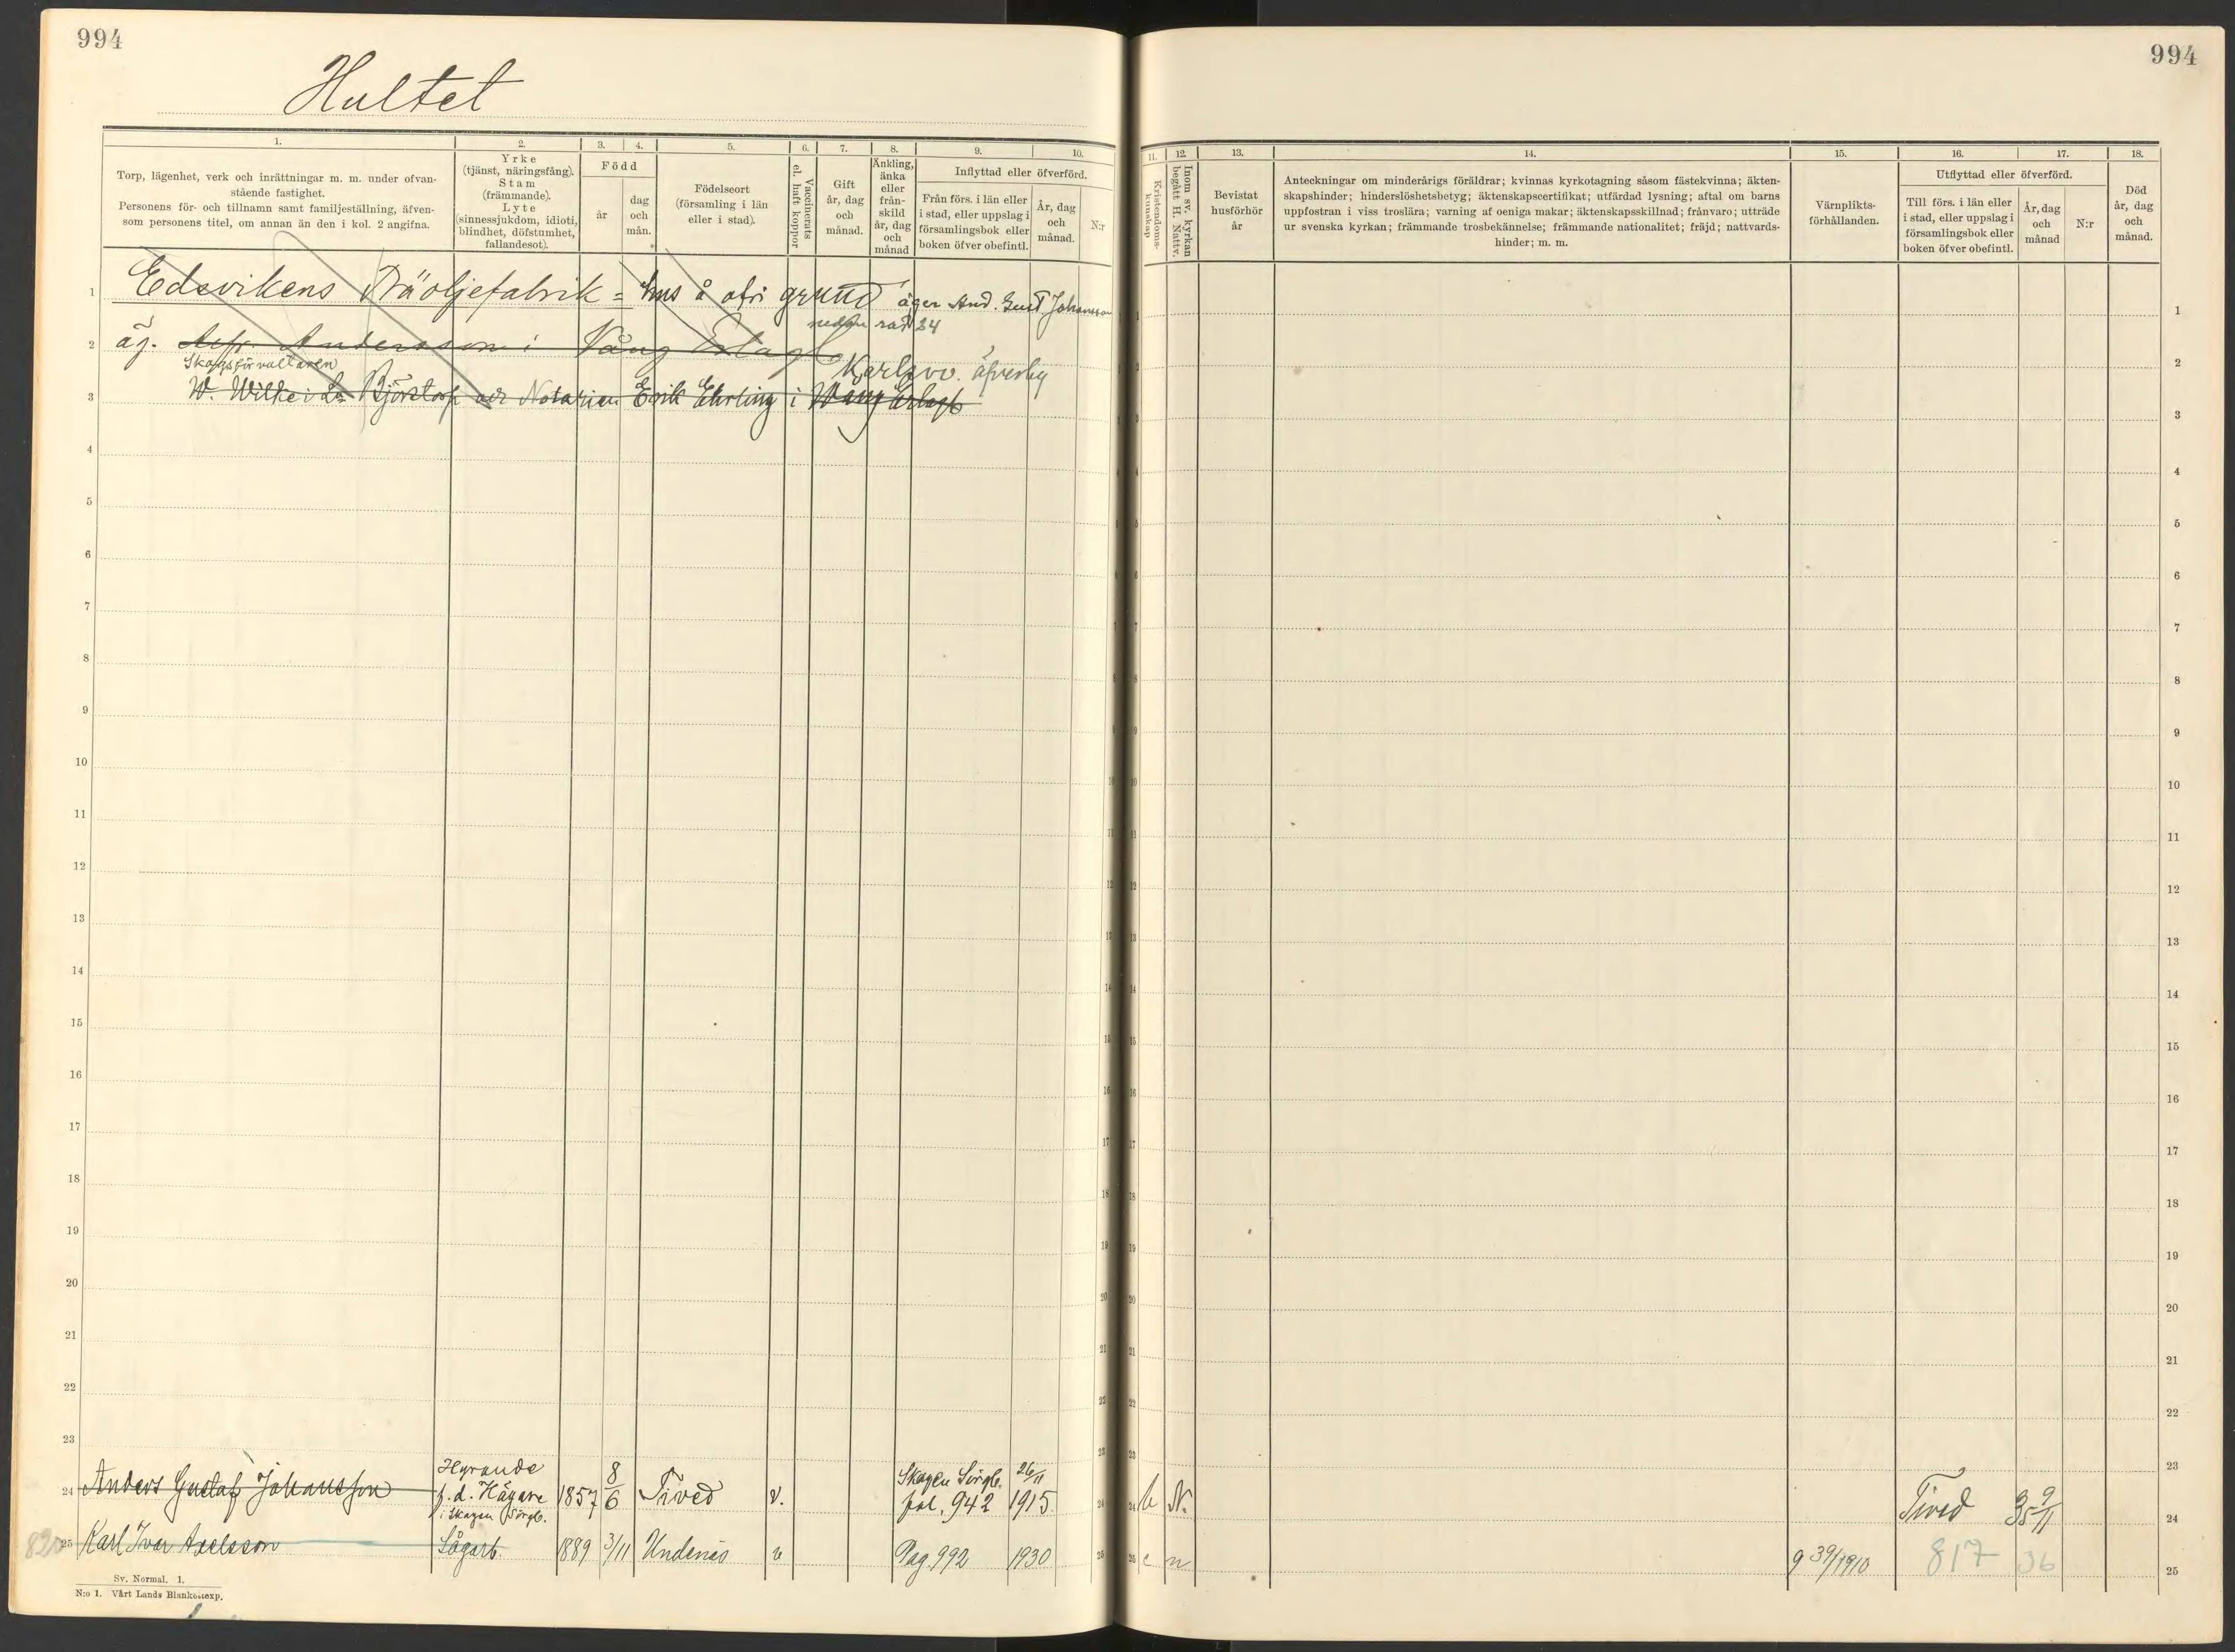 994
Hultet
1.
Torp, lägenhet, verk och inrättningar m. m. under ofvan-
stående fastighet.
Personens för- och tillnamn samt familjeställning, äfven-
som personens titel, om annan än den i kol. 2 angifna.
2.
Yrke
(tjänst, näringsfång).
Stam
(främmande).
Lyte
(sinnessjukdom, idioti,
blindhet, döfstumhet,
fallandesot).
3.
4.
Född
år
dag
och
mån.
5.
Födelseort
(församling i län
eller i stad).
6.
Vaccinerats
el. haft koppor
7.
Gift
år, dag
och
månad.
8.
Änkling,
änka
eller
från-
skild
år, dag
och
månad
9.
10.
Inflyttad eller öfverförd.
Från förs. i län eller
i stad, eller uppslag i
församlingsbok eller
boken öfver obefintl.
År, dag
och
månad.
N:r
1 Edsvikens Träoljefabrik = hus å ofri grund äger And. Gust Johansson
nedan rad 24
2 äg. Andersson i Vång
Skogsförvaltaren Karlsro. Äfverby
3 W. Wilke i Björstorp och Notarien Erik Ehrling i
4
5
6
7
8
9
10
11
12
13
14
15
16
17
18
19
20
21
22
23
24 Anders Gustaf Johansson Hyrande f. d. Hägare i Skagen Sörgb. 1857 8/6 Tived v. Skagen Sörgb. pal. 942 26/11 1915
820 25 Karl Ivar Axelsson Sågarb. 1889 3/11 Undenäs v Pag. 992 1930
Sv. Normal. 1.
N:o 1. Vårt Lands Blankettexp.
994
11.
Kristendoms-
kunskap
12.
Inom sv. kyrkan
begått H. Nattv.
13.
Bevistat
husförhör
år
14.
Anteckningar om minderårigs föräldrar; kvinnas kyrkotagning såsom fästekvinna; äkten-
skapshinder; hinderslöshetsbetyg; äktenskapscertifikat; utfärdad lysning; aftal om barns
uppfostran i viss troslära; varning af oeniga makar; äktenskapsskillnad; frånvaro; utträde
ur svenska kyrkan; främmande trosbekännelse; främmande nationalitet; fräjd; nattvards-
hinder; m. m.
15.
Värnplikts-
förhållanden.
16.
17.
Utflyttad eller öfverförd.
Till förs. i län eller
i stad, eller uppslag i
församlingsbok eller
boken öfver obefintl.
År, dag
och
månad
N:r
18.
Död
år, dag
och
månad.
1
2
3
4
5
6
7
8
9
10
11
12
13
14
15
16
17
18
19
20
21
22
23
24 b N. Tived 35 9/11 24
25 c n 9 39/1910 817 36 25